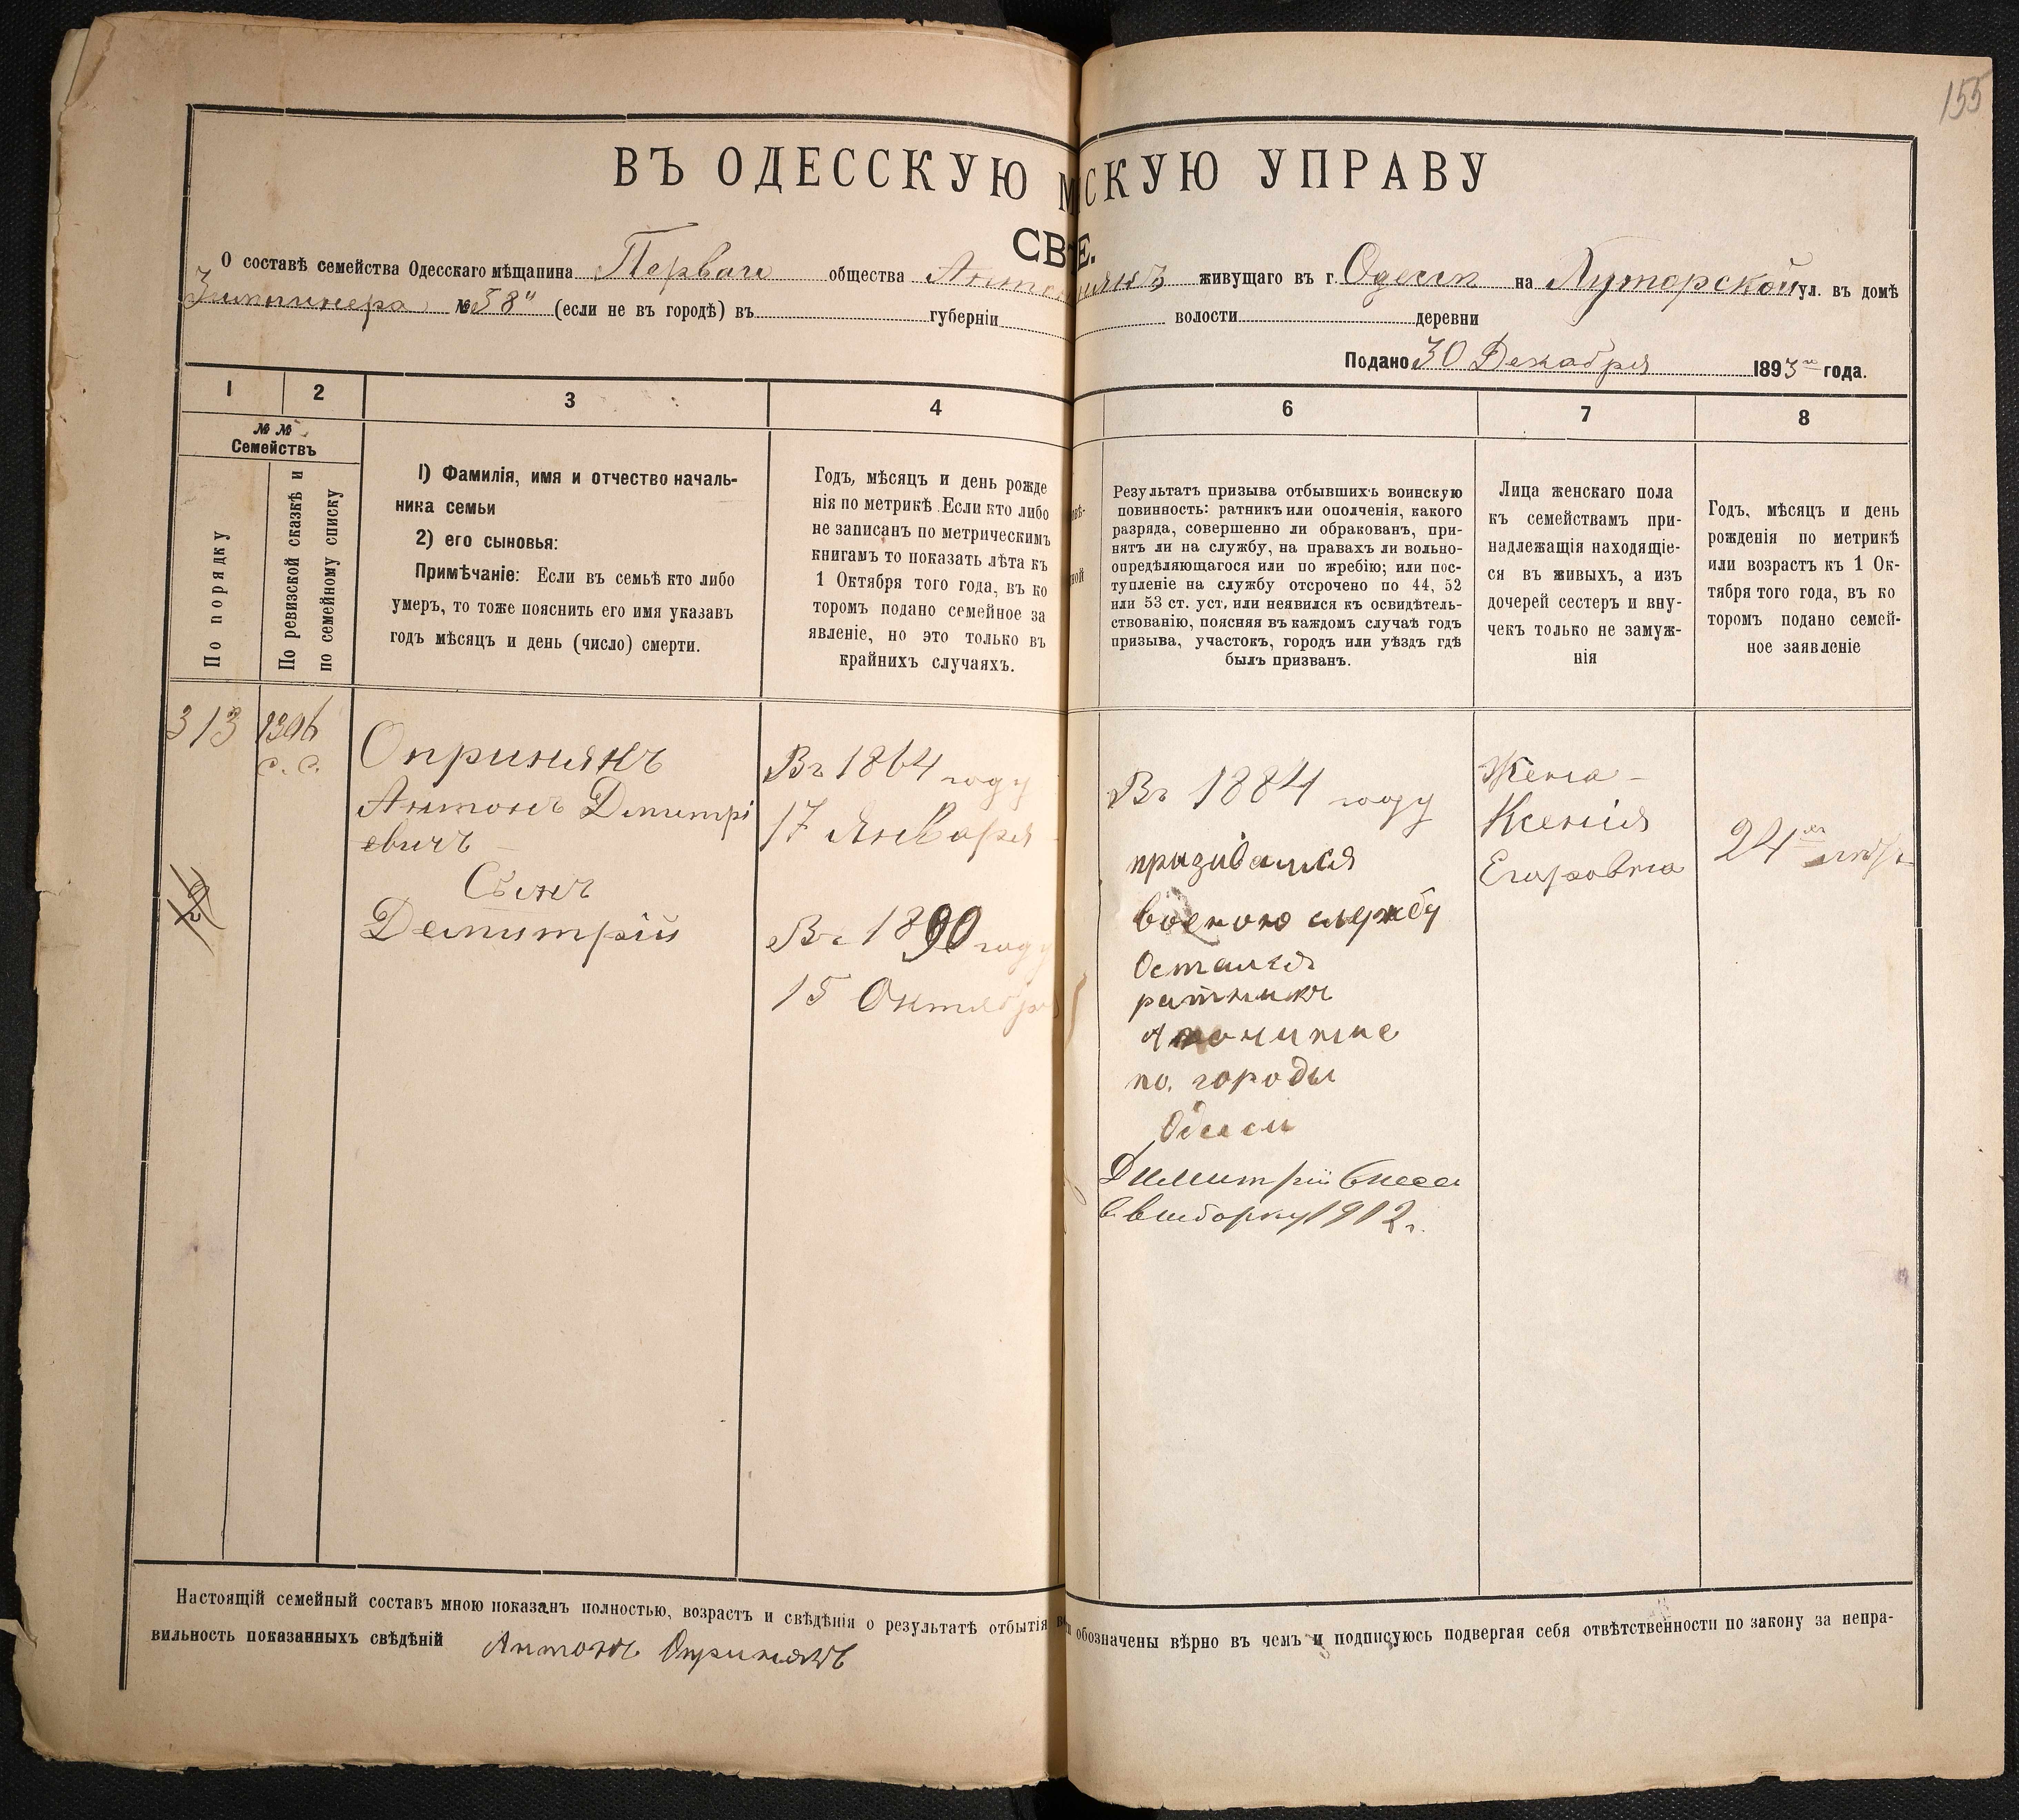 155
ВЪ ОДЕССКУЮ М СКУЮ УПРАВУ
СВ Е.
О составѣ семейства Одесскаго мѣщанина Перваго общества живущаго въ г. Одессѣ на Хуторской ул. въ домѣ
№ 58 (если не въ городѣ) въ губерніи волости деревни
Подано 30 Декабря 1893 года.
1 2 3 4 6 7 8
№ №
Семействъ
По порядку
По ревизской сказкѣ и
по семейному списку
1) Фамилія, имя и отчество началь-
ника семьи
2) его сыновья:
Примѣчаніе: Если въ семьѣ кто либо
умеръ, то тоже пояснить его имя указавъ
годъ мѣсяцъ и день (число) смерти.
Годъ, мѣсяцъ и день рожде
нія по метрикѣ. Если кто либо
не записанъ по метрическимъ
книгамъ то показать лѣта къ
1 Октября того года, въ ко
торомъ подано семейное за
явленіе, но это только въ
крайнихъ случаяхъ.
Результатъ призыва отбывшихъ воинскую
повинность: ратникъ или ополченія, какого
разряда, совершенно ли обракованъ, при-
нятъ ли на службу, на правахъ ли вольно-
опредѣляющагося или по жребію; или пос-
тупленіе на службу отсрочено по 44, 52
или 53 ст. уст. или неявился къ освидѣтель-
ствованію, поясняя въ каждомъ случаѣ годъ
призыва, участокъ, городъ или уѣздъ гдѣ
былъ призванъ.
Лица женскаго пола
къ семействамъ при-
надлежащія находящіе-
ся въ живыхъ, а изъ
дочерей сестеръ и вну-
чекъ только не замуж-
нія
Годъ, мѣсяцъ и день
рожденія по метрикѣ
или возрастъ къ 1 Ок-
тября того года, въ ко
торомъ подано семей-
ное заявленіе
313
1396
с. с.
Опринянъ
Антонъ Дмитрі
евичъ
Сынъ
Демитрій
Въ 1864 году
17 Января
Въ 1890 году
15 Октября
Въ 1884 году
призивался
военою службу
Остался
ратникъ
по. городы
Одесы
Димитрій
1912 г.
Жена
Ксенія
Егоровна
24
Настоящій семейный составъ мною показанъ полностью, возрастъ и свѣдѣнія о результатѣ отбытія обозначены вѣрно въ чемъ и подписуюсь подвергая себя отвѣтственности по закону за непра-
вильность показанныхъ свѣдѣній Антонъ Опринянъ